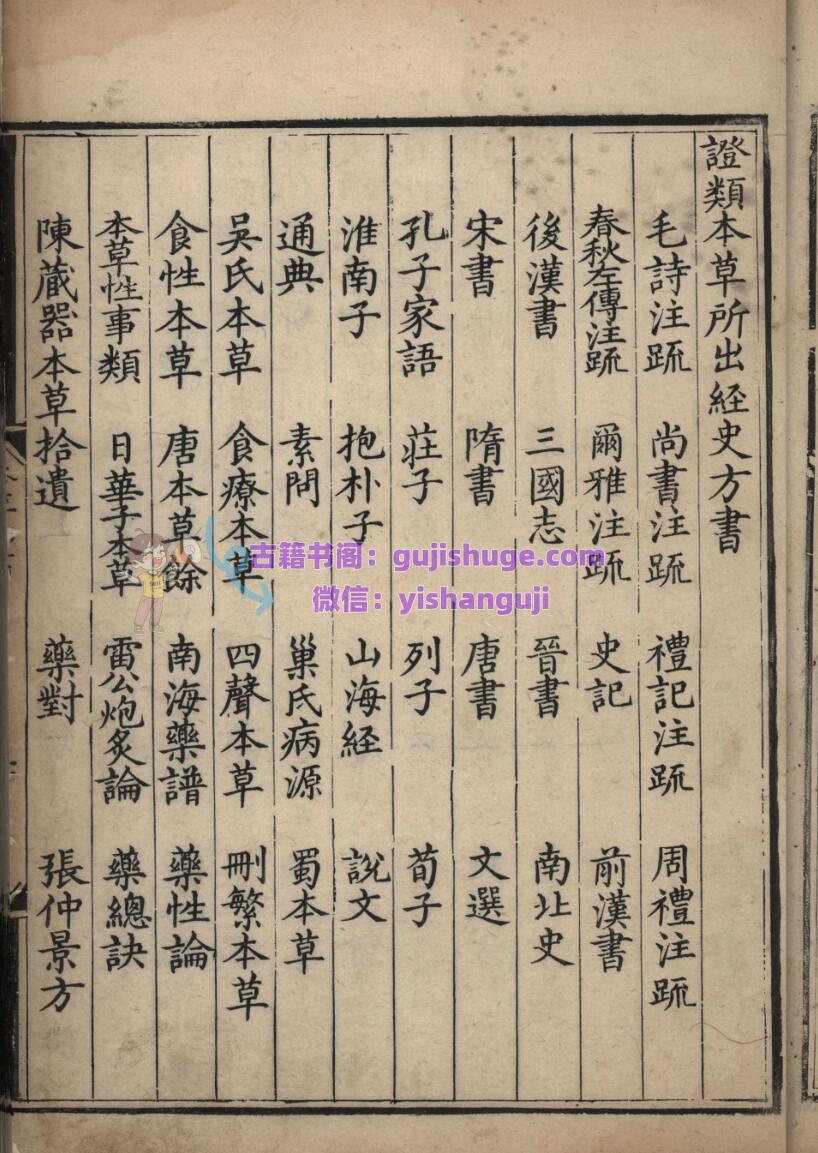 證類本草所出経史方書
毛詩注䟽 尚書注䟽 禮記注䟽 周禮注䟽
春秋左傳注䟽 爾雅注䟽 史記 前漢書
後漢書 三國志 晉書 南北史
宋書 隋書 唐書 文選
孔子家語 莊子 列子 荀子
淮南子 抱朴子 山海経 說文
通典 素問 巢氏病源 蜀本草
吳氏本草 食療本草 四聲本草 刪繁本草
食性本草 唐本草餘 南海藥譜 藥性論
本草性事類 日華子本草 雷公炮炙論 藥總訣
陳藏器本草拾遺 藥對 張仲景方
古籍书阁：gujishuge.com
微信：yishanguji